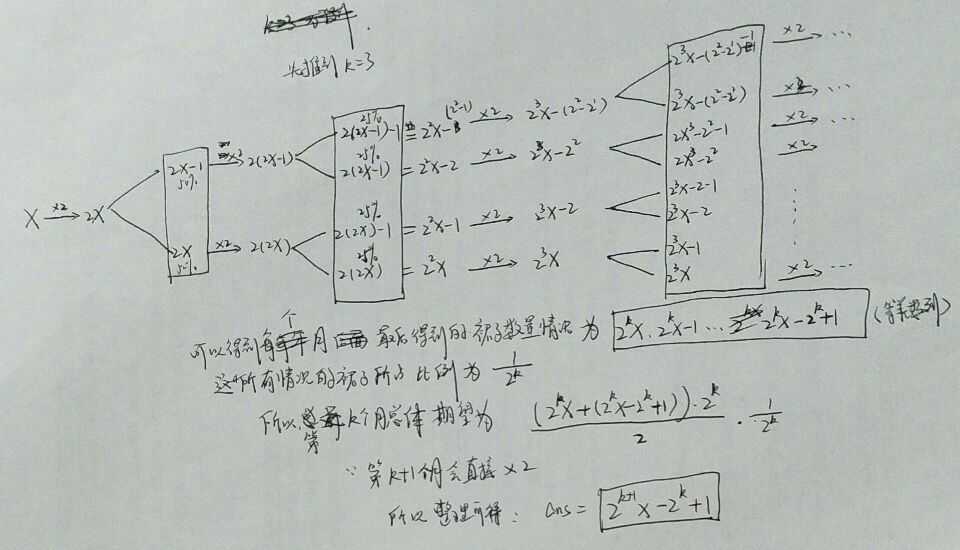 当推到 k=3
X ×2→ 2X
2X-1 50% ×2→ 2(2X-1)
2X 50% ×2→ 2(2X)
25% 2(2X-1)-1 = 2²X- (2²-1) ×2→ 2³X-(2²-2¹)
25% 2(2X-1) = 2²X-2 ×2→ 2³X-2²
25% 2(2X)-1 = 2²X-1 ×2→ 2³X-2
25% 2(2X) = 2²X ×2→ 2³X
2³X-(2²-2¹)-1 ×2→ ···
2³X-(2²-2¹) ×2→ ···
2X³-2²-1 ×2→ ···
2X³-2² ×2→
2³X-2-1
2³X-2
2³X-1
2³X ×2→ ···
可以得到每个月 最后得到的裙子数量情况为 2ᵏX, 2ᵏX-1 ··· 2ᵏX-2ᵏ+1 (等差数列)
这个所有情况的裙子所占比例为 1/2ᵏ
所以第k个月总体期望为 (2ᵏX+(2ᵏX-2ᵏ+1))·2ᵏ/2 · 1/2ᵏ
∵ 第k+1个月会直接×2
所以整理可得: ans = 2ᵏ⁺¹X-2ᵏ+1